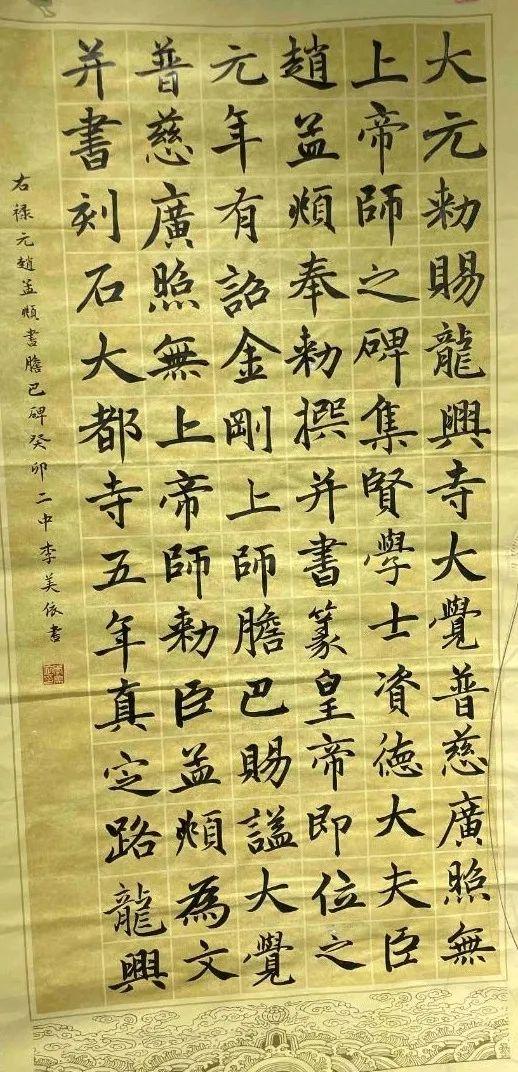 大元勅賜龍興寺大覺普慈廣照無
上帝師之碑集賢學士資德大夫臣
趙孟頫奉勅撰并書篆皇帝即位之
元年有詔金剛上師膽巴賜謚大覺
普慈廣照無上帝師勅臣孟頫為文
并書刻石大都寺五年真定路龍興
右禄元趙孟頫書膽巴碑癸卯二中李美依書